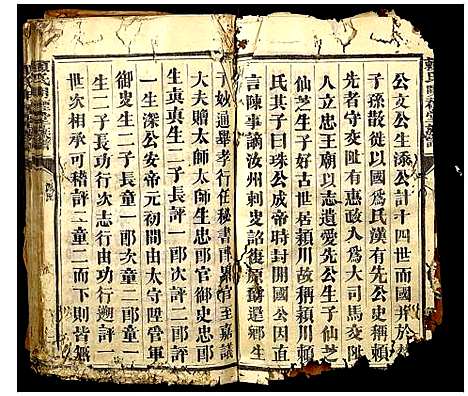 公文公生添公計十四世而國并於
子孫散徙以國為氏漢有先公史稱賴
先者守交阯有惠政入為大司馬交阯
人立忠王廟以志遺愛先公生子仙芝
仙芝生子好古世居潁川故稱潁川賴
氏其子曰珠公成帝時封開國公因直
言陳事謫汝州刺史詔復原爵還鄉生
子妙通舉孝行任秘書
官王嘉議
大夫贈太師太師生忠郎官御史忠郎
生衷衷生二子長評一郎次評二郎
一生深公安帝元初間由太守陞管軍
御叟生二子長童一郎次童二郎童一
生二子長功行次志行由功行遡評一
世次相承可稽評二童二而下則皆無